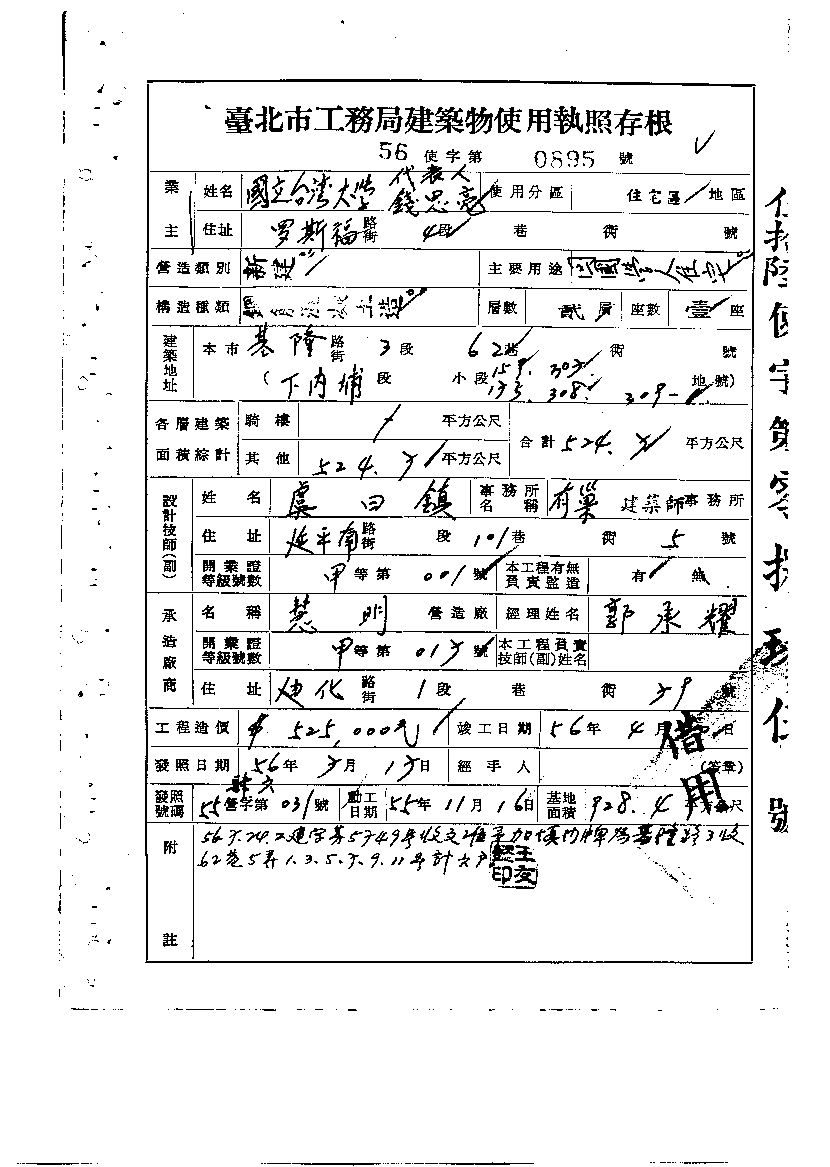 臺北市工務局建築物使用執照存根
56 使字第 0895 號
業主 姓名 國立台灣大學 代表人 錢思亮 使用分區 住宅區 地區
住址 罗斯福 路街 4段 巷 衖 號
營造類別 新建 主要用途
構造種類 層數 貳層 座數 壹座
建築地址 本市 基隆 路街 3段 62巷 衖 號
(下內埔 段 小段 308. 地號)
各層建築面積綜計 騎樓 平方公尺 合計 524. 平方公尺
其他 524. 平方公尺
設計技師(副) 姓名 虞曰鎮 事務所名稱 有巢 建築師事務所
住址 延平南 路街 段 101巷 衖 5 號
開業證等級號數 甲等第 001 號 本工程有無負責監造 有 無
承造廠商 名稱 慧明 營造廠 經理姓名 郭承耀
開業證等級號數 甲等第 號 本工程負責技師(副)姓名
住址 迪化 路街 1段 巷 衖 號
工程造價 $ 525,000元 竣工日期 56年 4月 日
發照日期 56年 月 日 經手人 (簽章)
發照號碼 55營字第 031號 動工日期 55年 11月 16日 基地面積 928.4
附註
62巷5弄1.3.5. .9.11号計六戶
借用
號